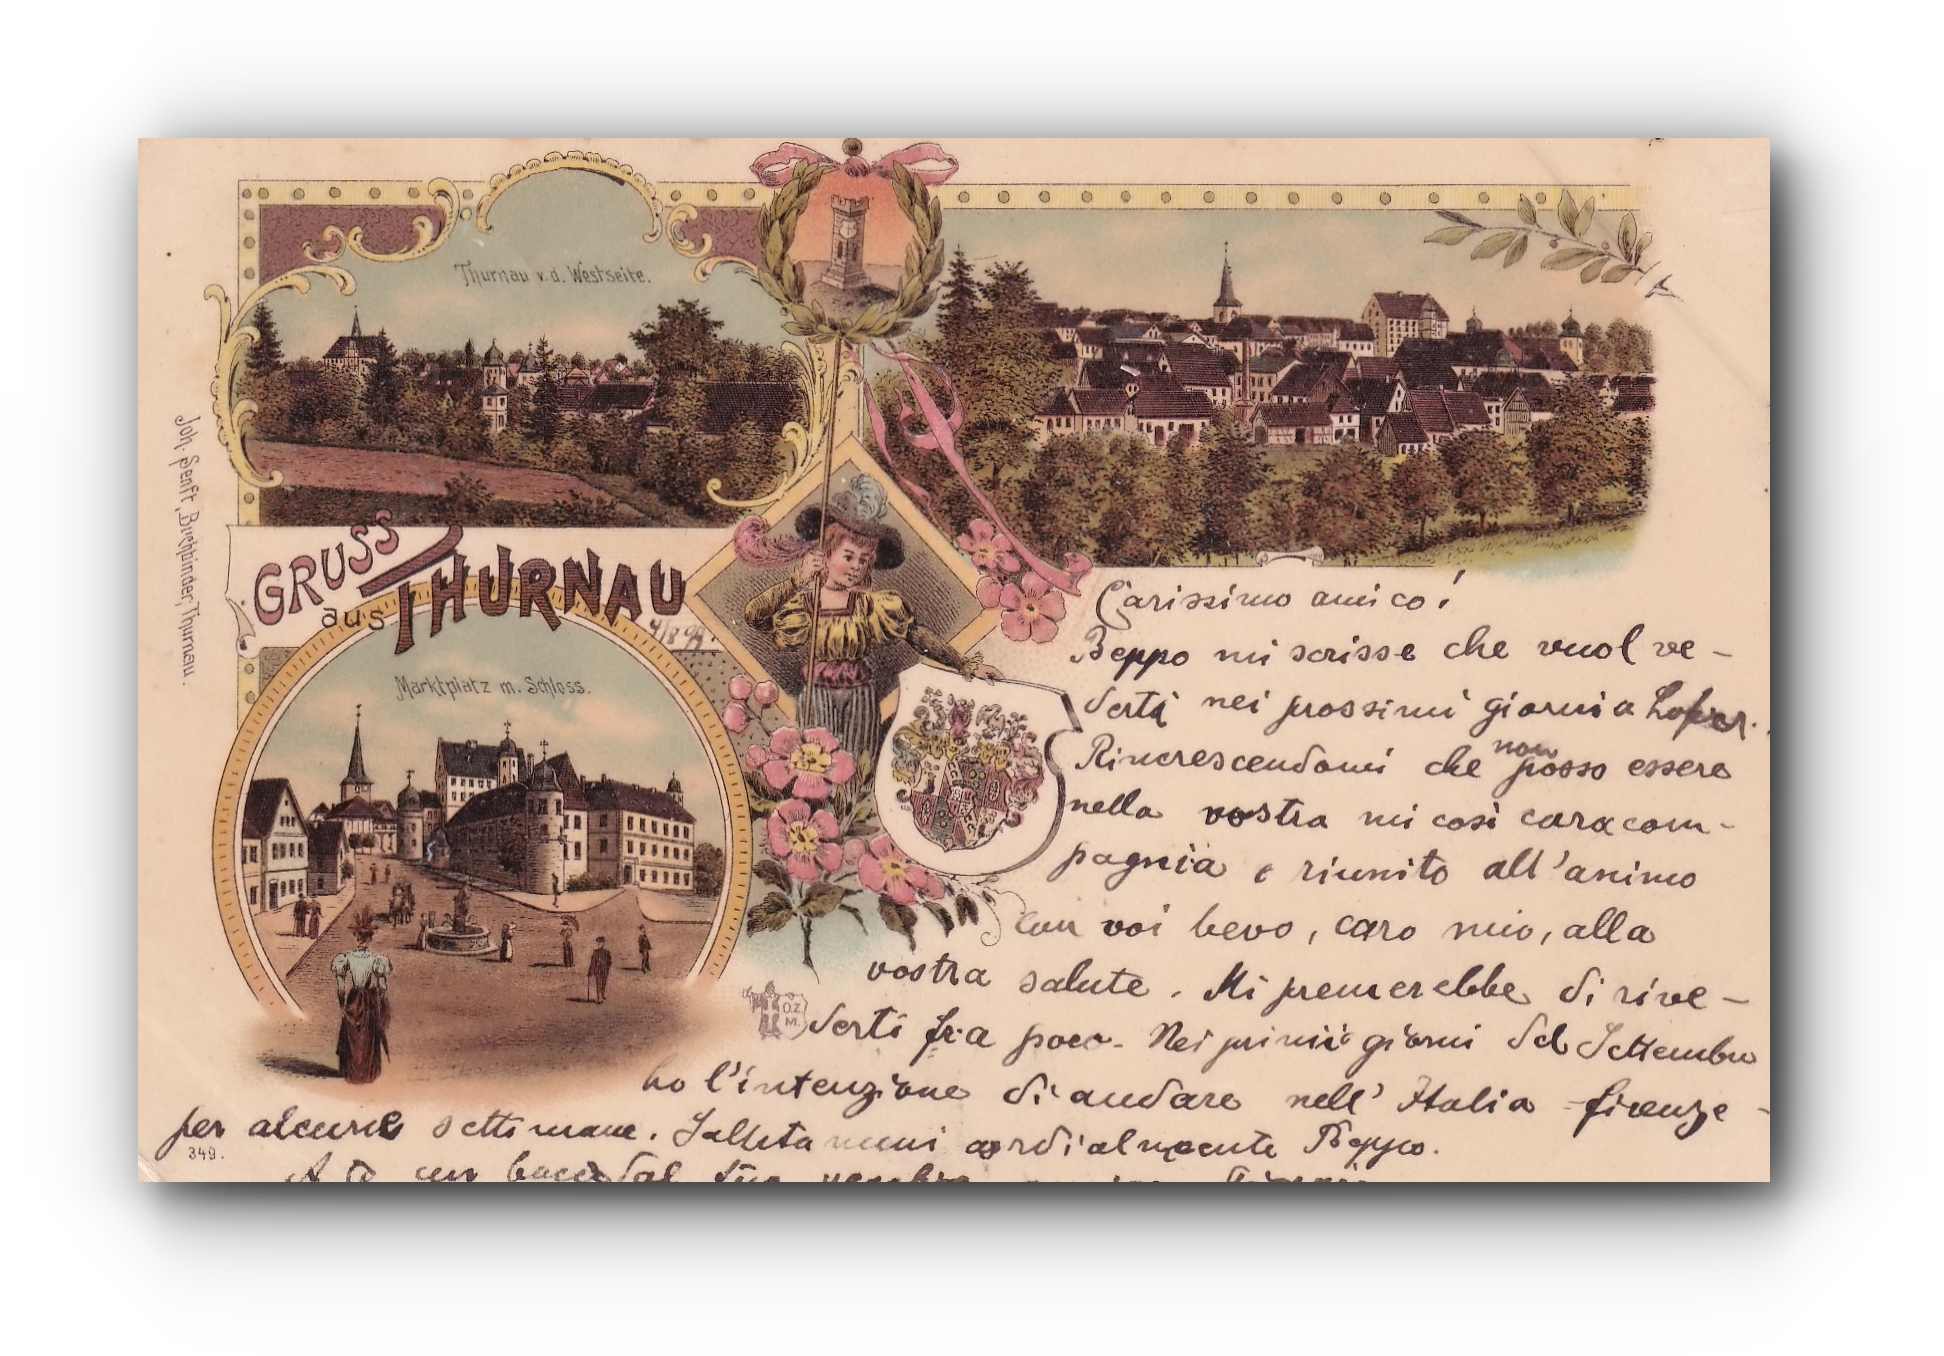 Thurnau v. d. Westseite.
Joh. Senft, Buchbinder, Thurnau.
GRUSS
aus THURNAU
4/8 99.
Marktplatz m. Schloss.
Carissimo amico!
Beppo mi scrisse che vuol ve-
derti nei prossimi giorni a
Rincrescendomi che non posso essere
nella vostra mi così cara com-
pagnia e riunito all'animo
con voi bevo, caro mio, alla
vostra salute. Mi premerebbe di rive-
derti fra poco. Nei primi giorni del Settembre
ho l'intenzione di andare nell' Italia - firenze -
per alcune settimane. Salutammi cordialmente Beppo.
A te un bacio dal tuo vecchio
O.Z.
M.
349.